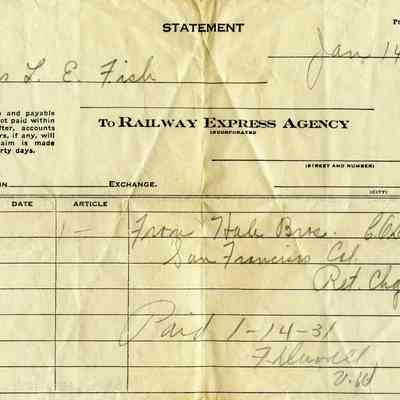 STATEMENT
Jan 14
s L. E. Fish
and payable
not paid within
after, accounts
rs, if any, will
aim is made
rty days.
To RAILWAY EXPRESS AGENCY
INCORPORATED
(STREET AND NUMBER)
IN EXCHANGE. (CITY)
DATE ARTICLE
1- From Hale Bros.
San Francisco Cal.
Ret. Chg
Paid 1-14-31